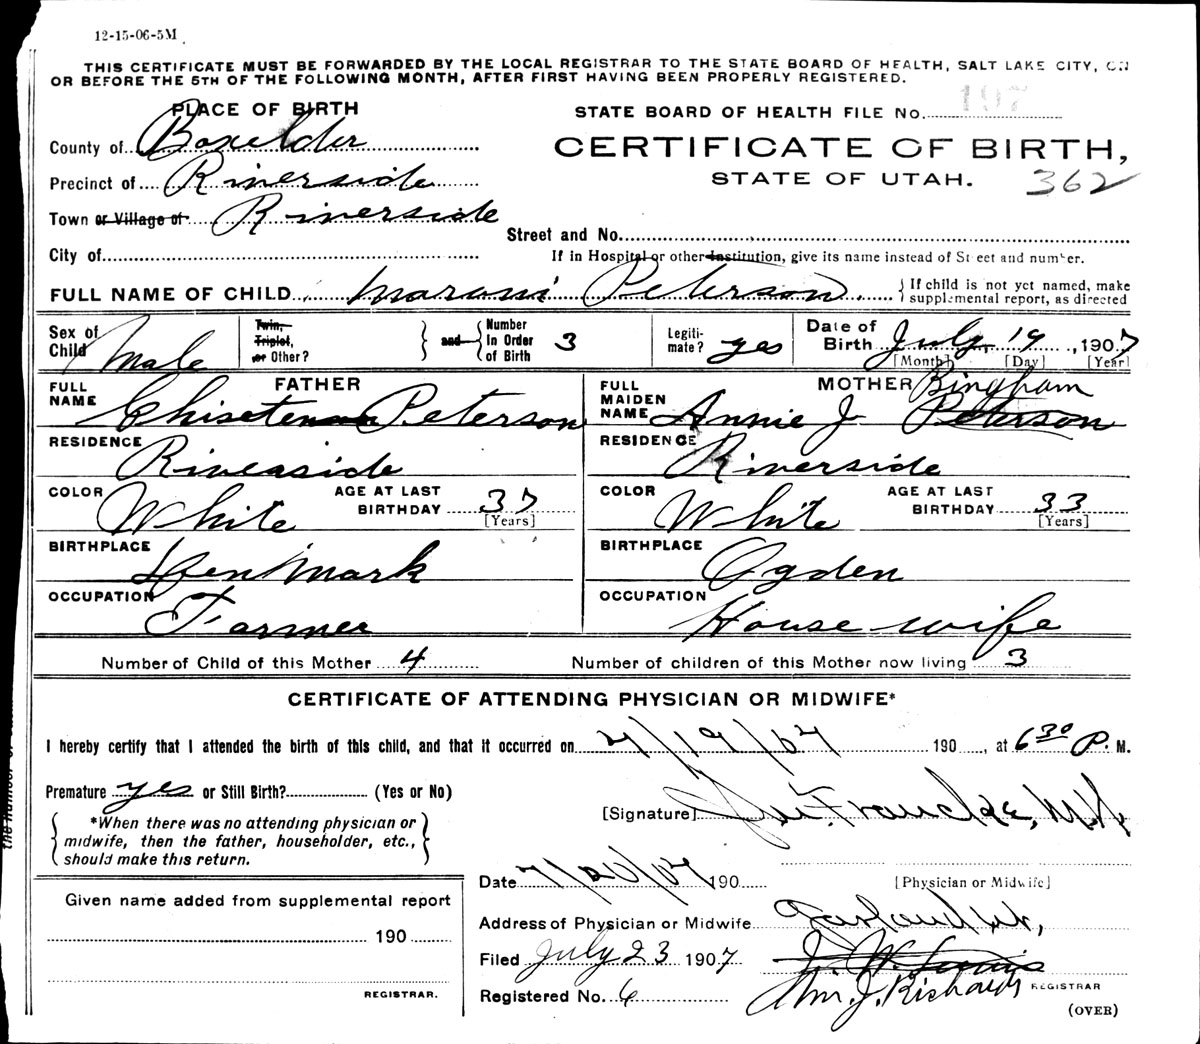 12-15-06-5M
THIS CERTIFICATE MUST BE FORWARDED BY THE LOCAL REGISTRAR TO THE STATE BOARD OF HEALTH, SALT LAKE CITY, ON
OR BEFORE THE 5TH OF THE FOLLOWING MONTH, AFTER FIRST HAVING BEEN PROPERLY REGISTERED.
PLACE OF BIRTH
STATE BOARD OF HEALTH FILE No. 197
County of Boxelder
CERTIFICATE OF BIRTH,
Precinct of Riverside
STATE OF UTAH. 362
Town or Village of Riverside
Street and No.
City of
If in Hospital or other Institution, give its name instead of Street and number.
FULL NAME OF CHILD Maroni Peterson { If child is not yet named, make supplemental report, as directed
Sex of Child Male
Twin, Triplet, or Other? } and { Number In Order of Birth 3
Legiti-mate? yes
Date of Birth July 19, 1907
[Month] [Day] [Year]
FATHER
FULL NAME Peterson
MOTHER
FULL MAIDEN NAME Annie J Peterson Bingham
RESIDENCE Riverside
RESIDENCE Riverside
COLOR White AGE AT LAST BIRTHDAY 37 [Years]
COLOR White AGE AT LAST BIRTHDAY 33 [Years]
BIRTHPLACE Denmark
BIRTHPLACE Ogden
OCCUPATION Farmer
OCCUPATION House wife
Number of Child of this Mother 4 Number of children of this Mother now living 3
CERTIFICATE OF ATTENDING PHYSICIAN OR MIDWIFE*
I hereby certify that I attended the birth of this child, and that it occurred on 7/19/07 190 , at 6 30 P. M.
Premature yes or Still Birth? (Yes or No)
[Signature] Francke, M.D.
{ *When there was no attending physician or midwife, then the father, householder, etc., should make this return. }
Date 7/20/07 190
[Physician or Midwife]
Given name added from supplemental report
190
REGISTRAR.
Address of Physician or Midwife Garland Ut,
Filed July 23 1907
Registered No. 6
Wm. J. Richards REGISTRAR
(OVER)